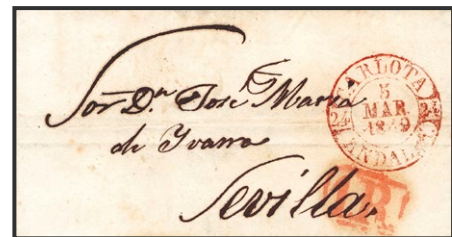 Sor. Dn. José Maria
de Yvarra
Sevilla.
CARLOTA
5
MAR
24 24
ANDAL